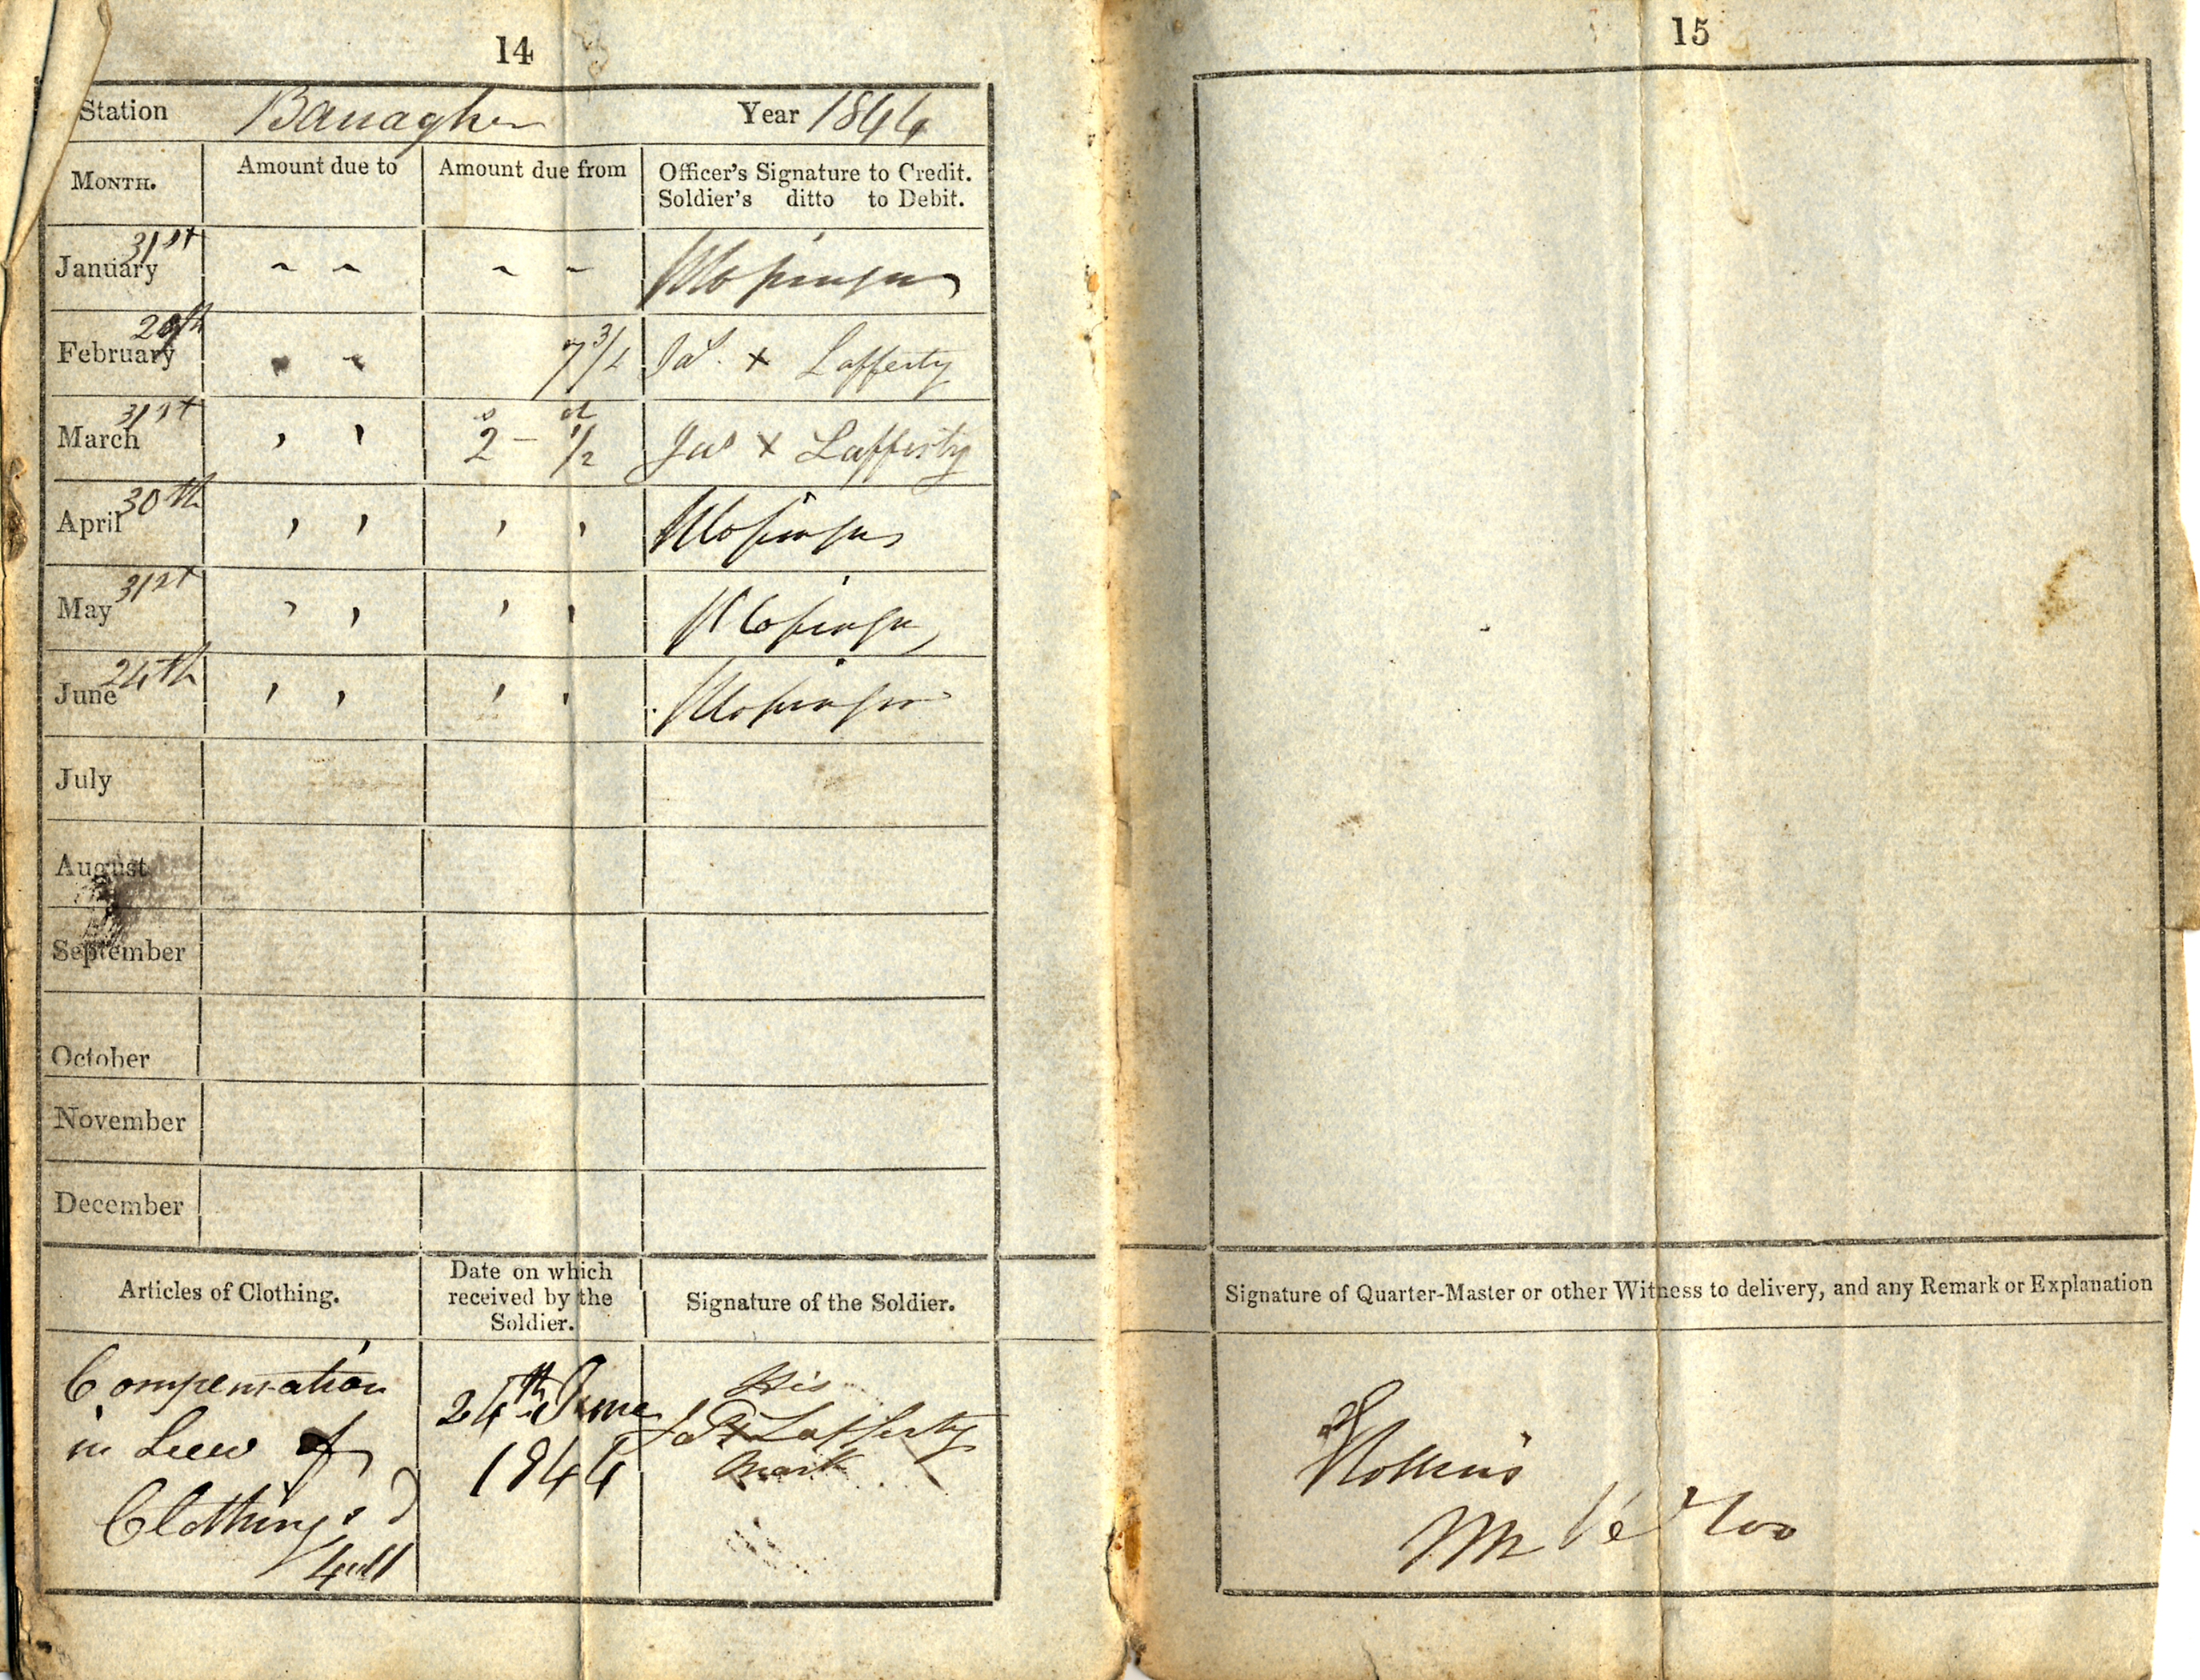 14
Station Banagher Year 1844
MONTH. Amount due to Amount due from Officer's Signature to Credit.
Soldier's ditto to Debit.
January 31st
February 29th 7 3/4 Jas. x Lafferty
March 31st 2 s - 1/2 d Jas x Lafferty
April 30th
May 31st
June 24th
July
August
September
October
November
December
Articles of Clothing. Date on which received by the Soldier. Signature of the Soldier.
Compensation
in Lieu of
Clothing
24th June
1844
His
Jas x Lafferty
Mark
15
Signature of Quarter-Master or other Witness to delivery, and any Remark or Explanation